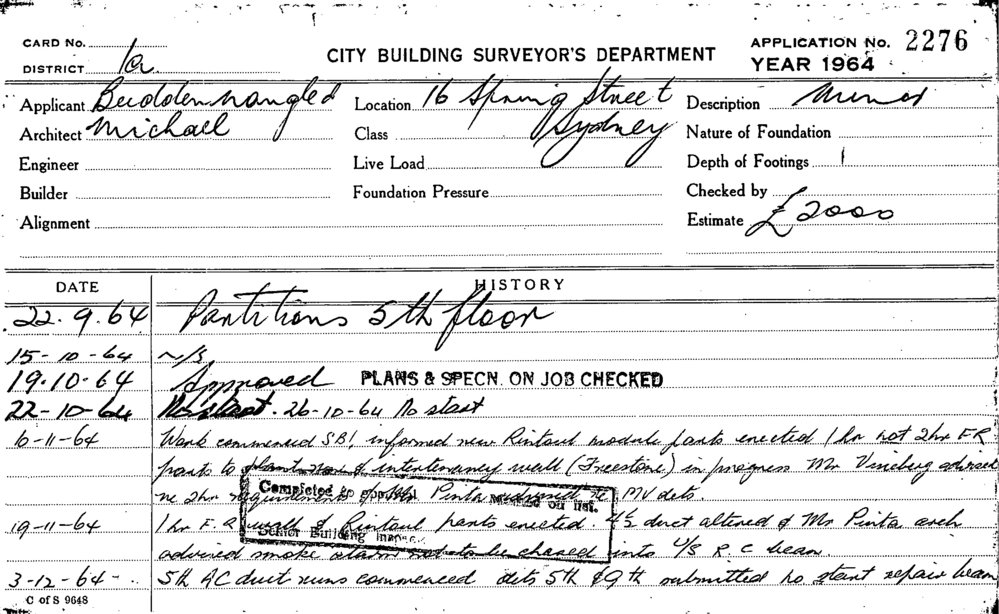 CARD No.
DISTRICT 1a
CITY BUILDING SURVEYOR'S DEPARTMENT
APPLICATION No. 2276
YEAR 1964
Applicant Buddennangled
Location 16 Spring Street
Sydney
Description Minor
Architect Michael
Class
Nature of Foundation
Engineer
Live Load
Depth of Footings
Builder
Foundation Pressure
Checked by
Alignment
Estimate £2000
DATE HISTORY
22.9.64 Partitions 5th floor
15-10-64 N/S
19.10-64 Approved PLANS & SPECN. ON JOB CHECKED
22-10-64 No start. 26-10-64 No start
6-11-64 Work commenced SBI informed new Rintoul module parts erected 1 hr not 2hr F R
parts to intertenancy wall (Freestone) in progress Mr Vineberg advised
re 2hr requirements Mr Pinta advised re MV dets.
Completed to approval
Senior Building Inspec
19-11-64 1 hr F.R wall of Rintoul parts erected. duct altered & Mr Pinta arch
advised smoke not to be chased into U/S R.C beam.
3-12-64 5th AC duct runs commenced dets 5th & 9th submitted no start repair beam
C of S 9648